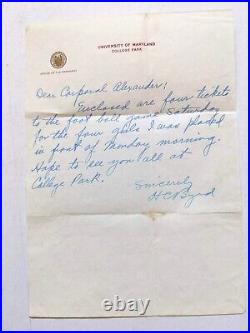 UNIVERSITY OF MARYLAND
COLLEGE PARK
OFFICE OF THE PRESIDENT
Dear Corporal Alexander:
Enclosed are four tickets
to the foot ball game Saturday
for the four girls I was placed
in front of Monday morning.
Hope to see you all at
College Park.
Sincerely
HCByrd